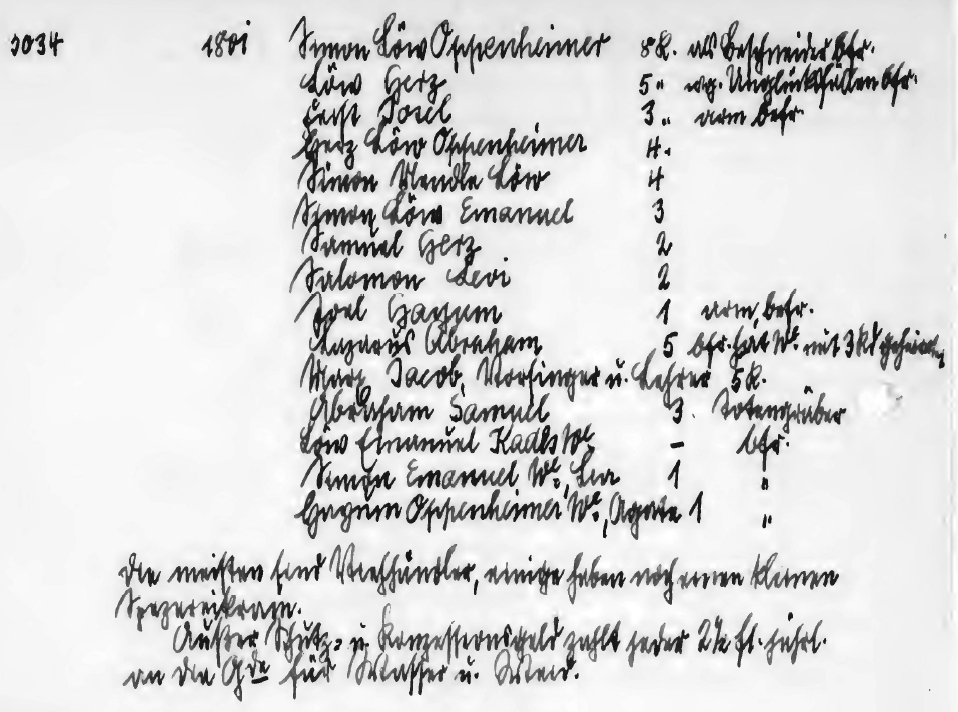 3034 1801 Simon Löw Oppenheimer 8 K. als Beschneider bfr.
Löw Herz 5 " wg. Unglücksfällen bfr.
Feist Josel 3 " arm befr.
Herz Löw Oppenheimer 4.
Simon Mendle Löw 4
Simon Löw Emanuel 3
Samuel Herz 2
Salomon Levi 2
Joel Hayum 1 arm, befr.
Lazarus Abraham 5 bfr. hat We. mit 3 Kd
Marx Jacob, Vorsinger u. Lehrer 5 K.
Abraham Samuel 3. Totengräber
Löw Emanuel We. – bfr.
Simon Emanuel We., 1 "
Hayum Oppenheimer We., Agate 1 "
Die meisten sind Viehhändler, einige haben noch einen kleinen
Spezereikram.
Außer Schutz- u. Konzessionsgeld zahlt jeder 2½ fl. jährl.
an die Gde für Wasser u. Weid.